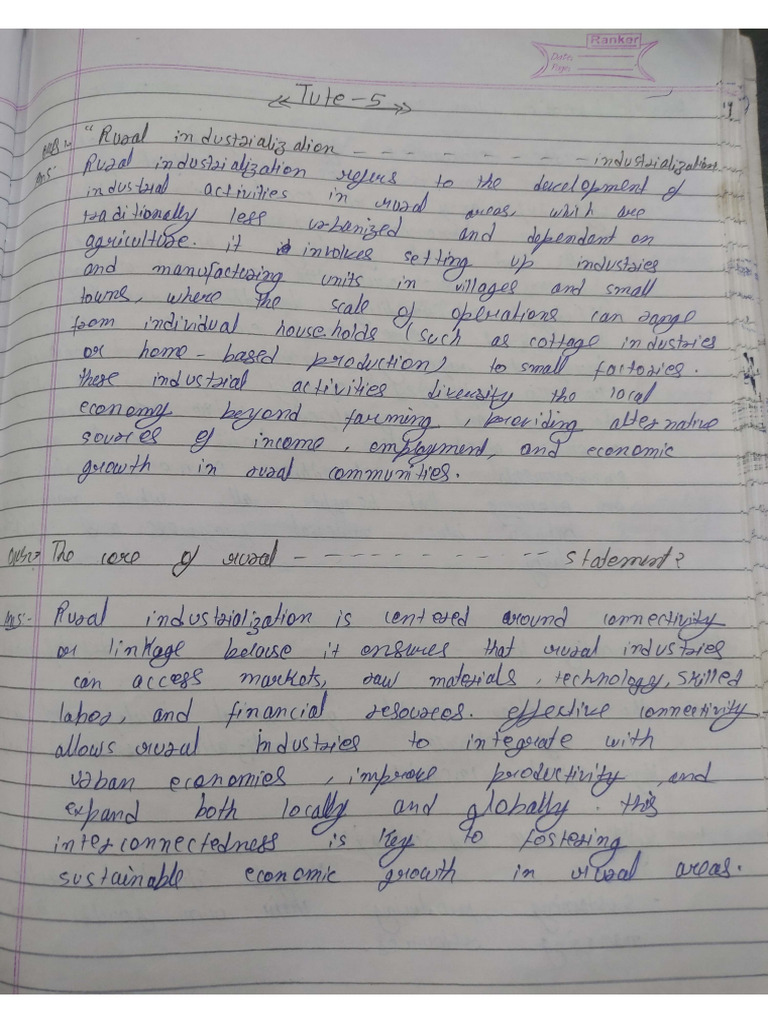 Ranker
Date:
Page:
<< Tute - 5 >>
Ques:- "Rural industrialization - - - - - - - - - industrialization
Ans:- Rural industrialization refers to the development of
industrial activities in rural areas, which are
traditionally less urbanized and dependant on
agriculture. it involves setting up industries
and manufacturing units in villages and small
towns, where the scale of operations can range
from individual households (such as cottage industries
or home-based production) to small factories.
these industrial activities diversify the local
economy beyond farming, providing alternative
sources of income, employment, and economic
growth in rural communities.
Ques:2 The core of rural - - - - - - - - - - - statement?
Ans:- Rural industrialization is centered around connectivity
or linkage because it ensures that rural industries
can access markets, raw materials, technology, skilled
labor, and financial resources. effective connectivity
allows rural industries to integrate with
urban economies, improve productivity, and
expand both locally and globally. this
interconnectedness is key to fostering
sustainable economic growth in rural areas.